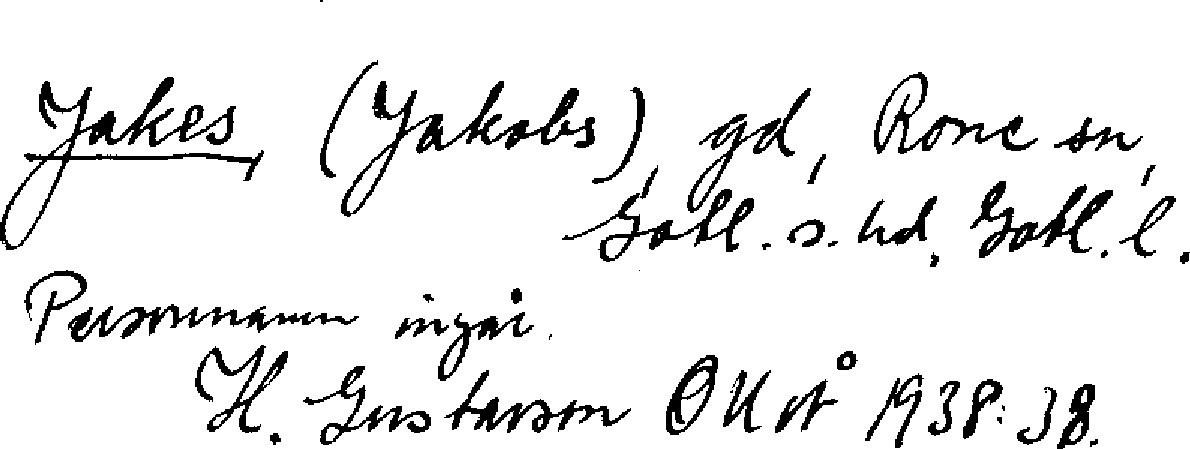 Jakes, (Jakobs), gd, Rone sn,
Gotl. s. hd, Gotl. l.
Personnamn ingår.
H. Gustavson OUoÅ 1938:38.